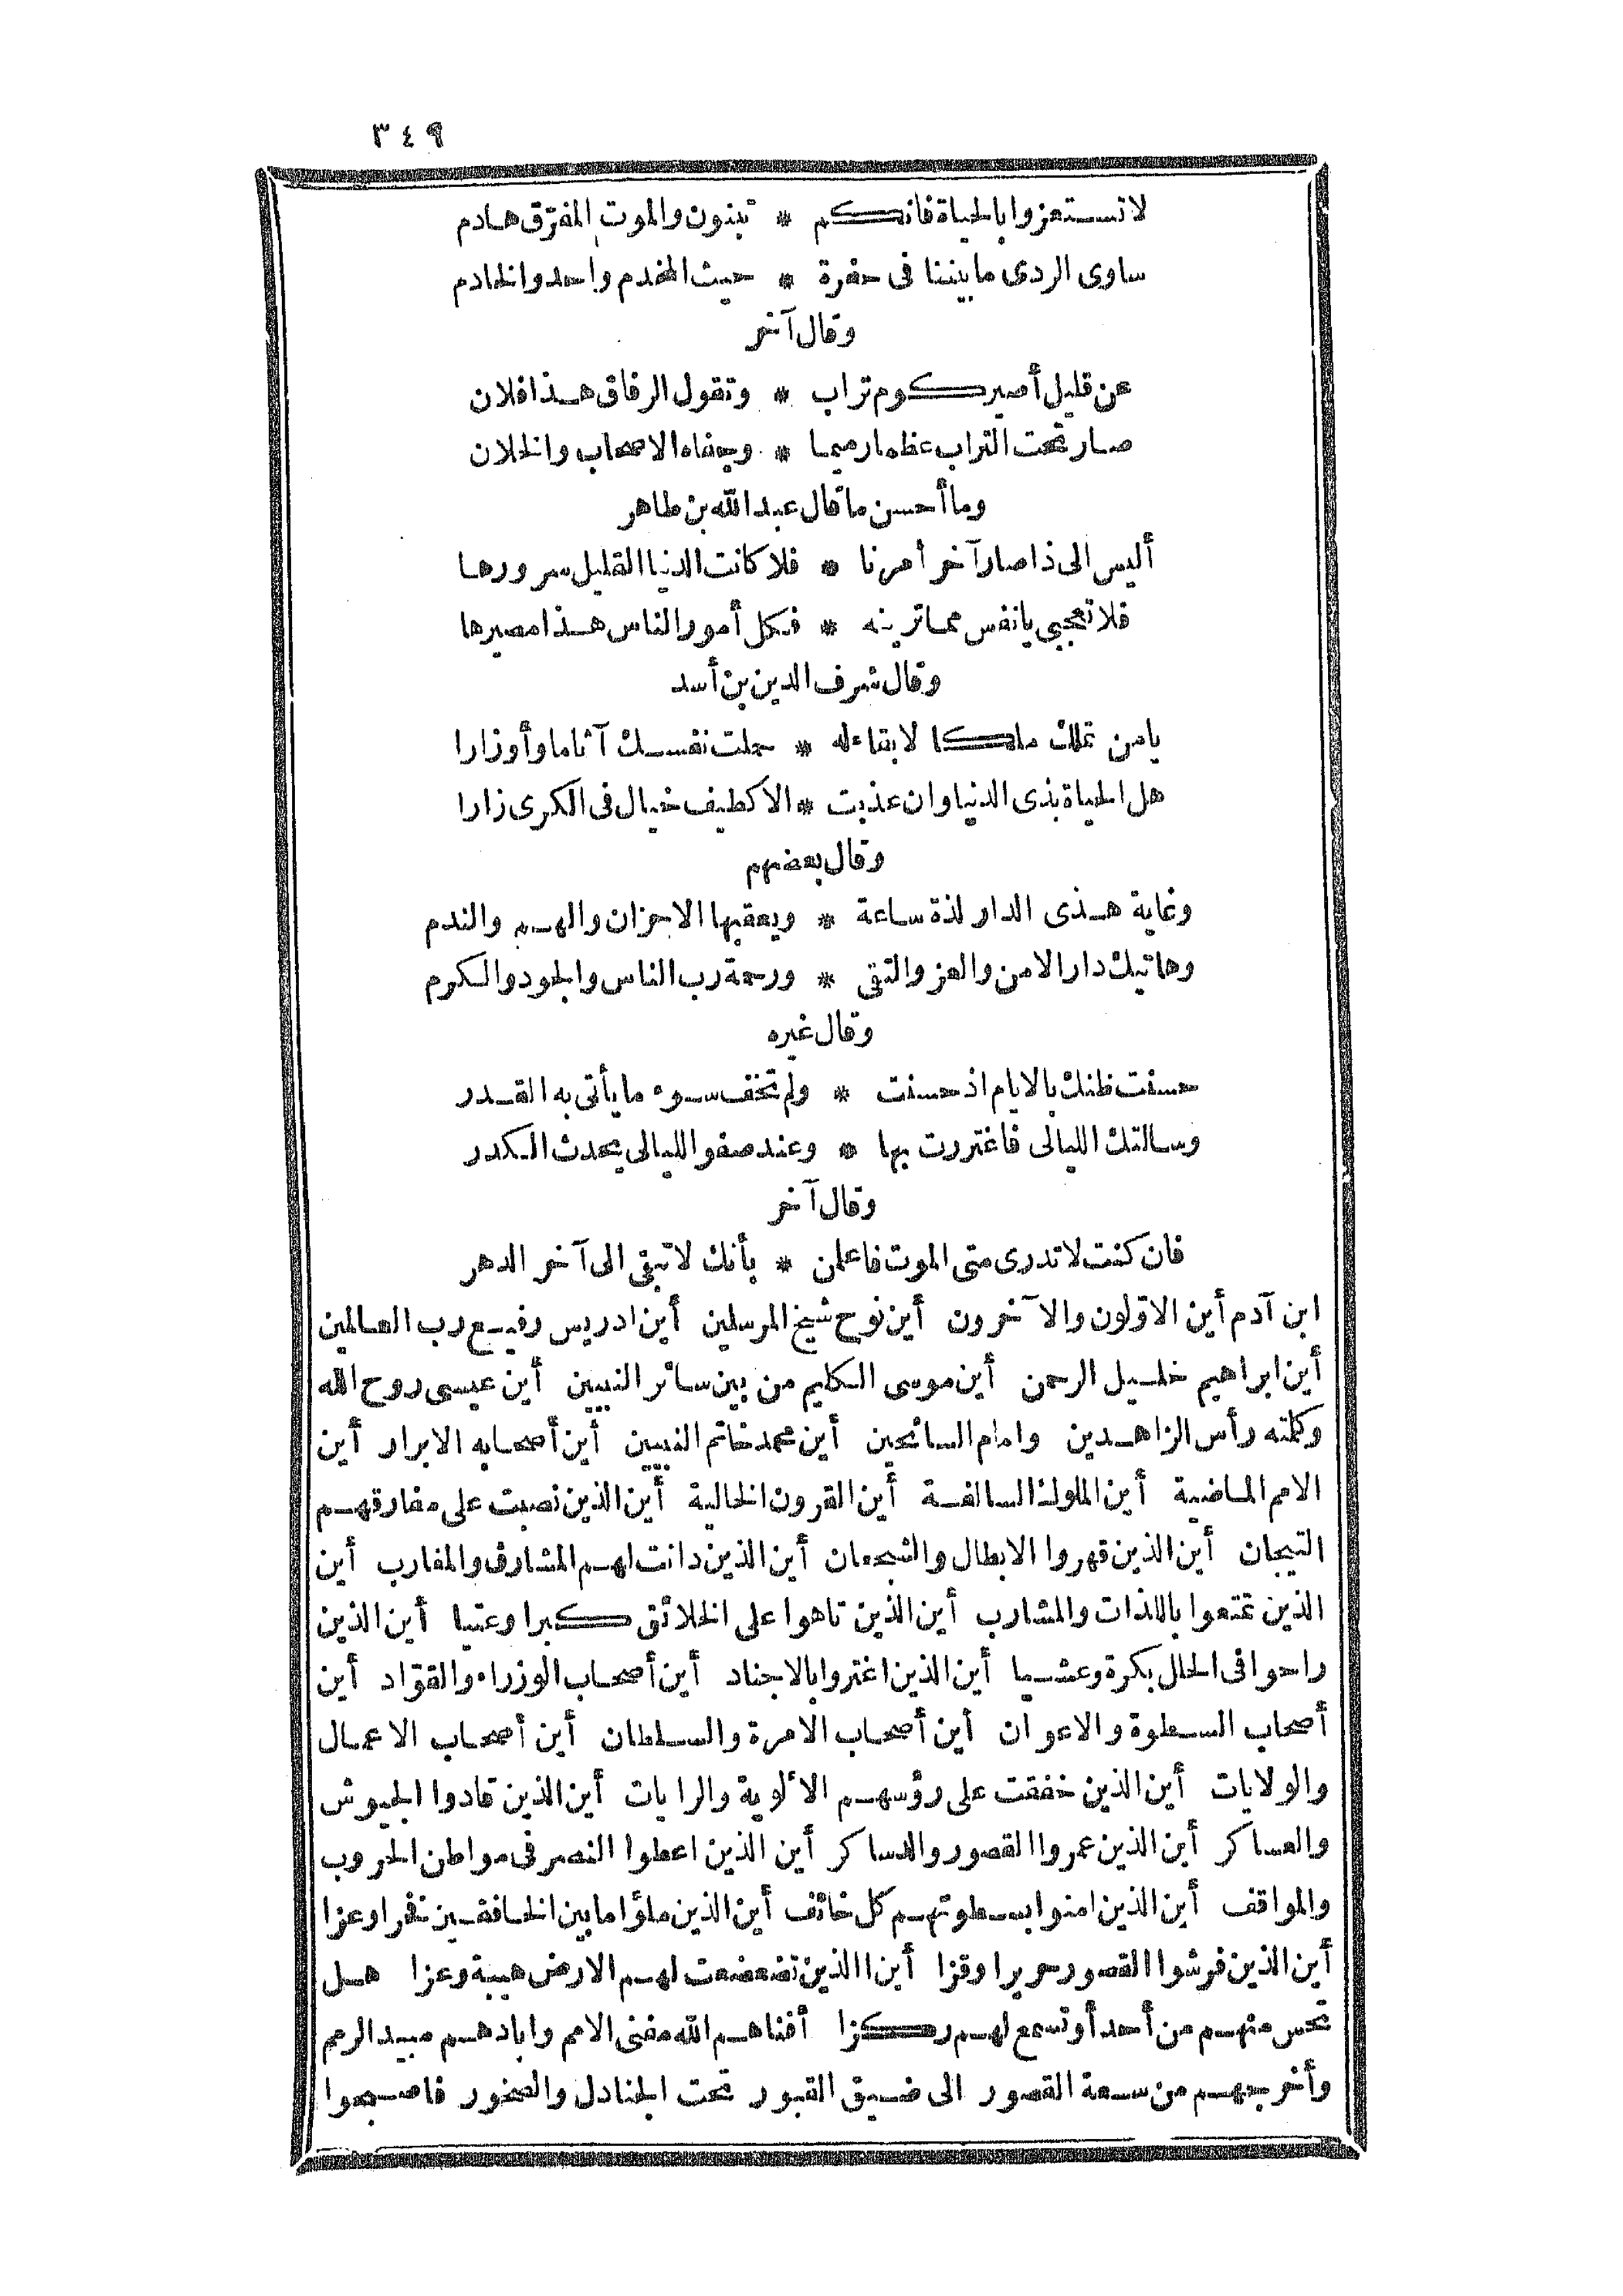 ٣٤٩
لا تستعزوا بالحياة فانكم * تبنون والموت المفرّق هادم
ساوى الردى ما بيننا فى حفرة * حيث المخدم واحد والخادم
وقال آخر
عن قليل أصير كوم تراب * وتقول الرفاق هذا فلان
صار تحت التراب عظما رميما * وجفاه الاصحاب والخلان
وما أحسن ما قال عبد الله بن طاهر
أليس الى ذا صار آخر أمرنا * فلا كانت الدنيا القليل سرورها
فلا تعجبي يا نفس مما ترينه * فكل أمور الناس هذا مصيرها
وقال شرف الدين بن أسد
يا من تملك ملكا لا بقاء له * حملت نفسك آثاما وأوزارا
هل الحياة بذى الدنيا وان عذبت * الا كطيف خيال فى الكرى زارا
وقال بعضهم
وغاية هذى الدار لذة ساعة * ويعقبها الاحزان والهم والندم
وهاتيك دار الامن والعز والتقى * ورحمة رب الناس والجود والكرم
وقال غيره
حسنت ظنك بالايام اذ حسنت * ولم تخف سوء ما يأتى به القدر
وسالتك الليالى فاغتررت بها * وعند صفو الليالى يحدث الكدر
وقال آخر
فان كنت لا تدرى متى الموت فاعلمن * بأنك لا تبقى الى آخر الدهر
ابن آدم أين الاوّلون والآخرون أين نوح شيخ المرسلين أين ادريس رفيع رب العالمين
أين ابراهيم خليل الرحمن أين موسى الكليم من بين سائر النبيين أين عيسى روح الله
وكلمته رأس الزاهدين وامام السائحين أين محمد خاتم النبيين أين أصحابه الابرار أين
الامم الماضية أين الملوك السالفة أين القرون الخالية أين الذين نصبت على مفارقهم
التيجان أين الذين قهروا الابطال والشجعان أين الذين دانت لهم المشارق والمغارب أين
الذين تمتعوا باللذات والمشارب أين الذين تاهوا على الخلائق كبرا وعتيا أين الذين
راحوا فى الحلل بكرة وعشيا أين الذين اغتروا بالاجناد أين أصحاب الوزراء والقوّاد أين
أصحاب السطوة والاعوان أين أصحاب الامرة والسلطان أين أصحاب الاعمال
والولايات أين الذين خفقت على رؤسهم الألوية والرايات أين الذين قادوا الجيوش
والعساكر أين الذين عمروا القصور والدساكر أين الذين اعطوا النصر فى مواطن الحروب
والمواقف أين الذين امنوا بسطوتهم كل خائف أين الذين ملؤا ما بين الخافقين فخرا وعزا
أين الذين فرشوا القصور حريرا وقزا أين االذين تضعضعت لهم الارض هيبة وعزا هل
تحس منهم من أحد أو تسمع لهم ركزا أفناهم الله مفنى الامم وابادهم مبيد الرمم
وأخرجهم من سعة القصور الى ضيق القبور تحت الجنادل والصخور فاصبحوا